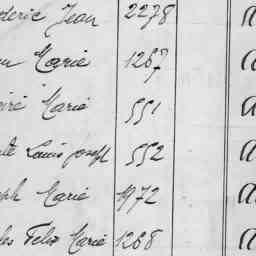 deric Jean 2278 a
Marie 1267 a
iré Marie 551 a
Louis Joseph 552 a
ph Marie 1972 a
les Felix Marie 1268 a